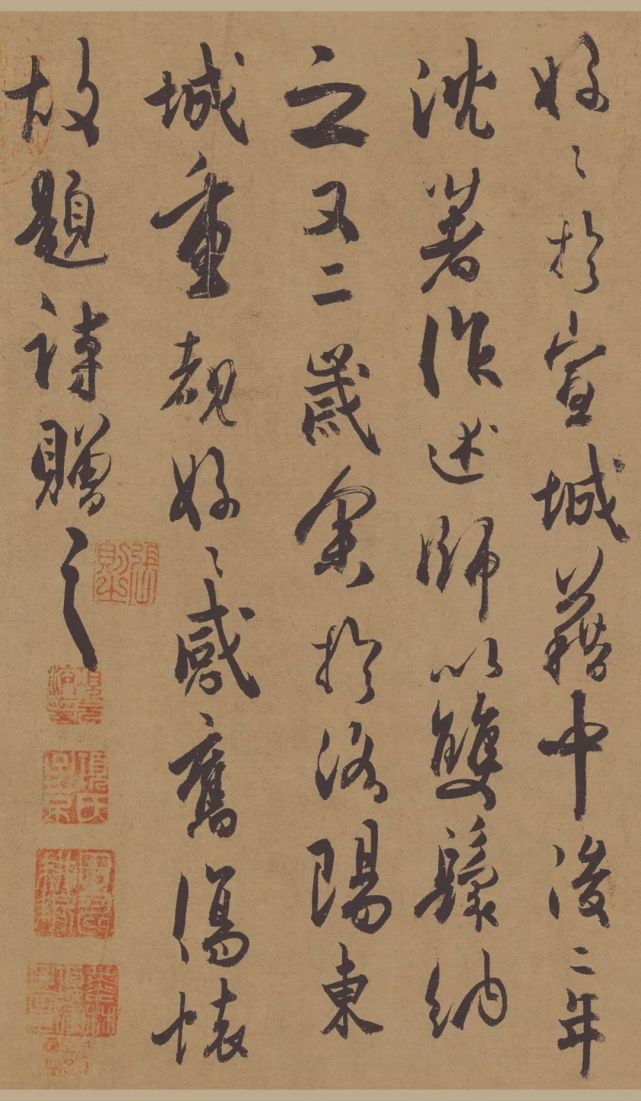 好〻於宣城籍中後二年
沈著作述師以雙鬟納
之又二歲余於洛陽東
城重覩好〻感舊傷懷
故題詩贈之